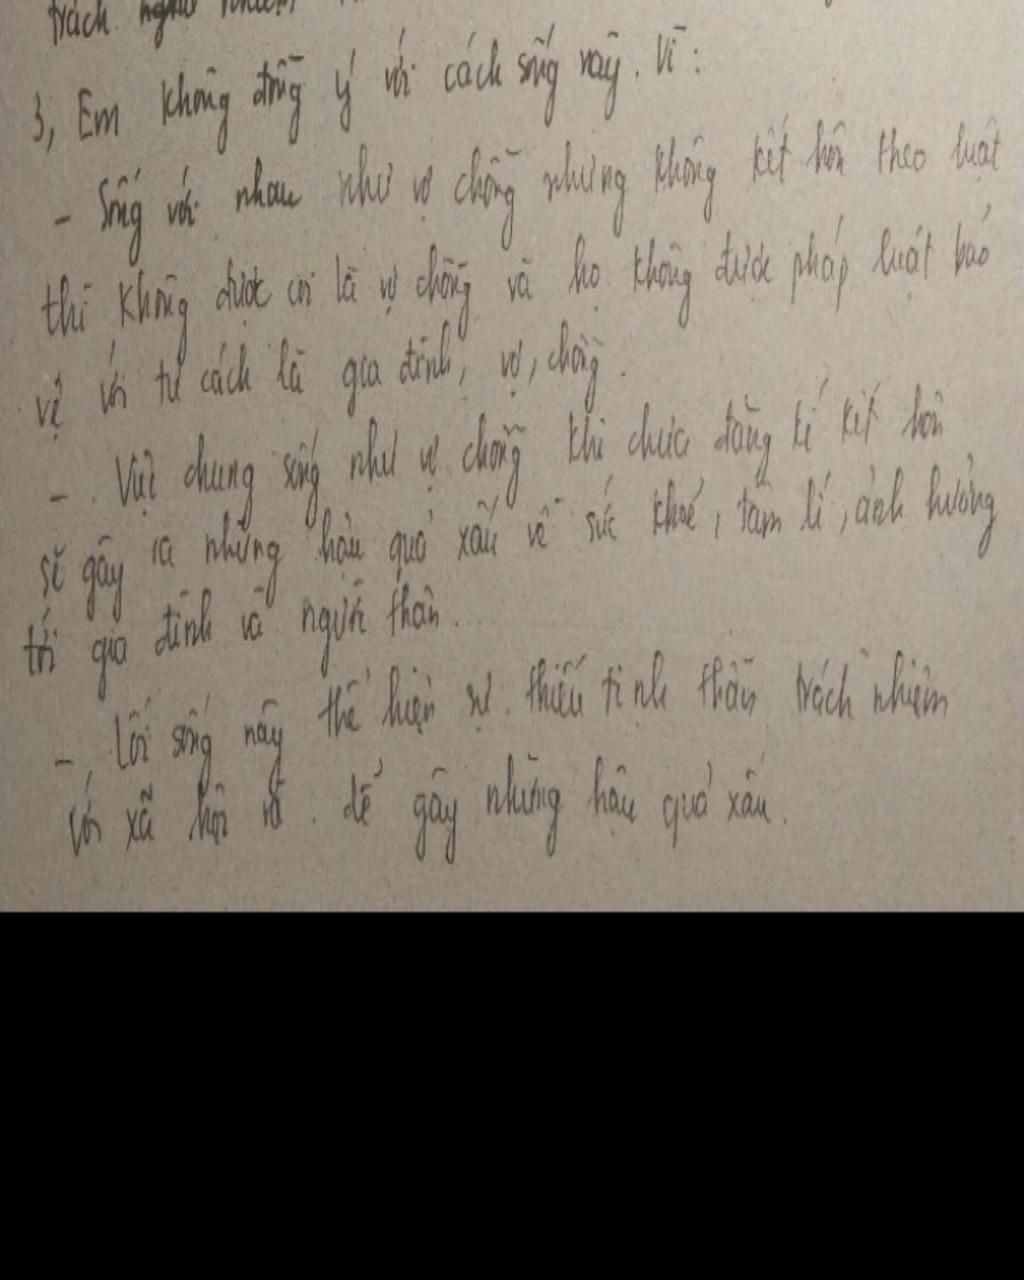 trách nhiệm
3, Em không đồng ý với cách sống này. Vì:
- Sống với nhau như vợ chồng nhưng không kết hôn theo luật
thì không được coi là vợ chồng và họ không được pháp luật bảo
vệ với tư cách là gia đình, vợ, chồng.
- Việc chung sống như vợ chồng khi chưa đăng kí kết hôn
sẽ gây ra những hậu quả xấu về sức khoẻ, tâm lí, ảnh hưởng
tới gia đình và người thân.
- Lối sống này thể hiện sự thiếu tinh thần trách nhiệm
với xã hội và dễ gây những hậu quả xấu.